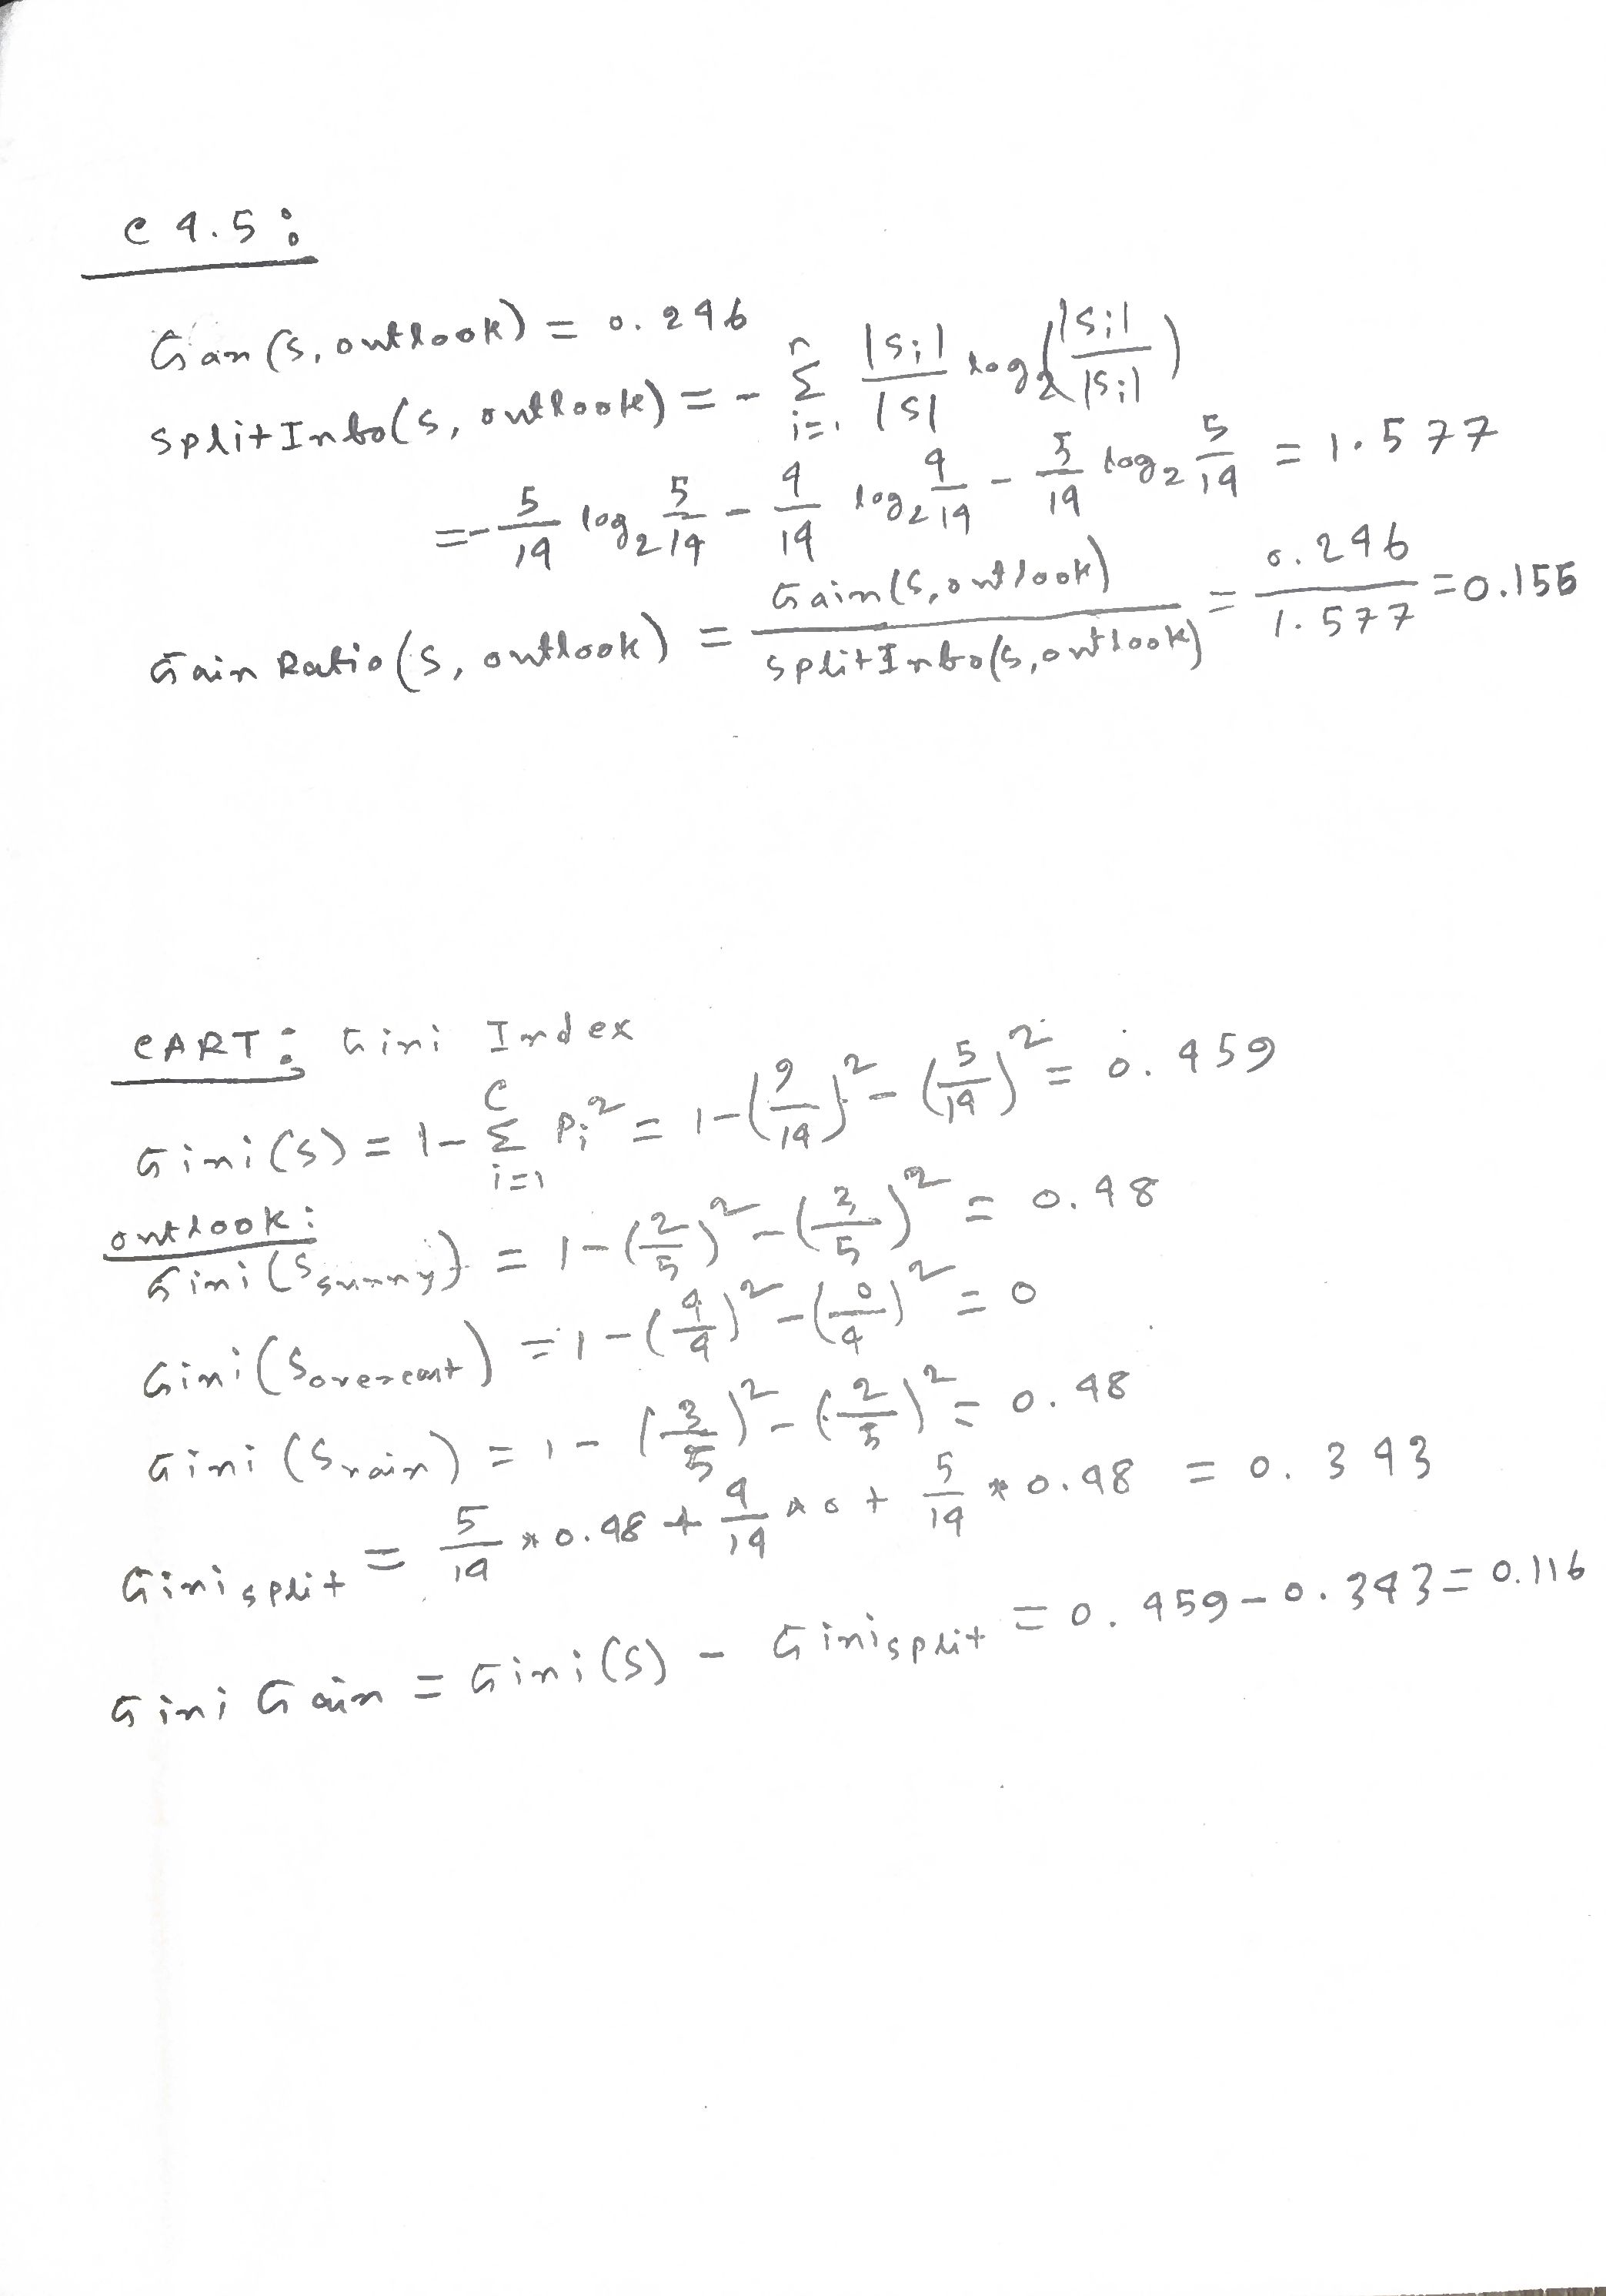 C4.5:
Gan(S, outlook) = 0.246
SplitInfo(S, outlook) = - Σ_{i=1}^{n} |S_i|/|S| log_2(|S_i|/|S_i|)
= - 5/14 log_2 5/14 - 4/14 log_2 4/14 - 5/14 log_2 5/14 = 1.577
Gain Ratio(S, outlook) = Gain(S, outlook)/SplitInfo(S, outlook) = 0.246/1.577 = 0.156
CART: Gini Index
Gini(S) = 1 - Σ_{i=1}^{C} P_i^2 = 1 - (9/14)^2 - (5/14)^2 = 0.459
outlook:
Gini(S_sunny) = 1 - (2/5)^2 - (3/5)^2 = 0.48
Gini(S_overcast) = 1 - (4/4)^2 - (0/4)^2 = 0
Gini(S_rain) = 1 - (3/5)^2 - (2/5)^2 = 0.48
Gini_split = 5/14 * 0.48 + 4/14 * 0 + 5/14 * 0.48 = 0.343
Gini Gain = Gini(S) - Gini_split = 0.459 - 0.343 = 0.116